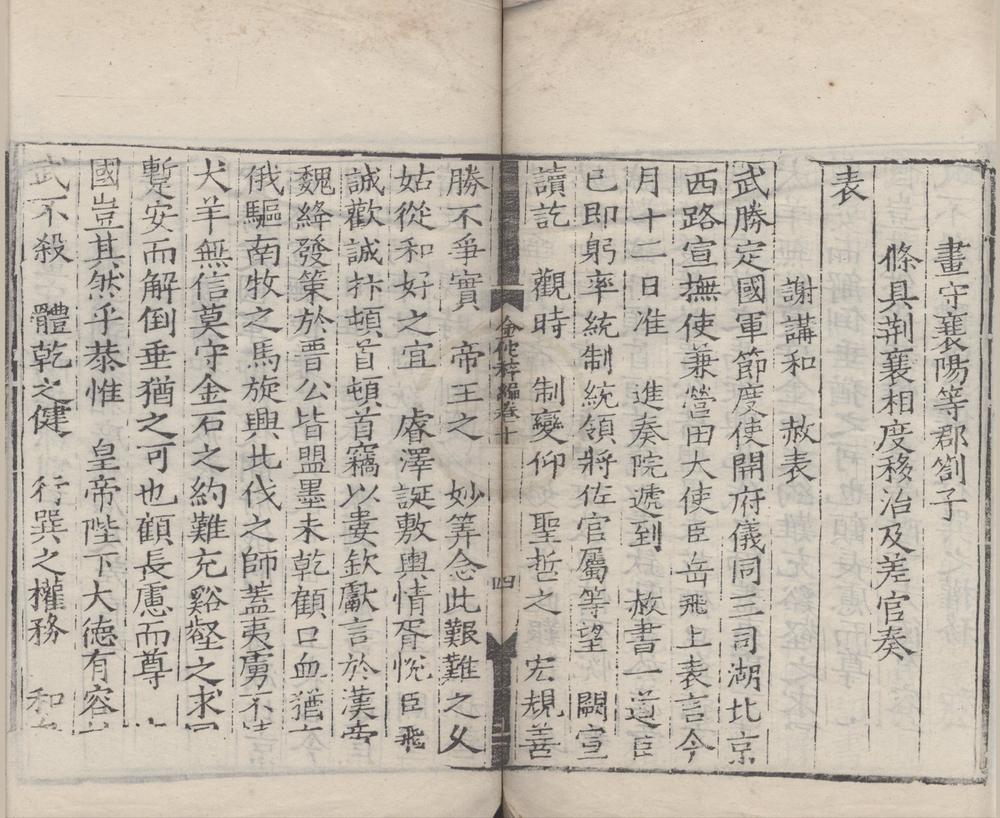 畫守襄陽等郡劄子
條具荆襄相度移治及差官奏
表
謝講和　赦表
武勝定國軍節度使開府儀同三司湖北京
西路宣撫使兼營田大使臣岳飛上表言今
月十二日准　進奏院遞到　赦書一道臣
已即躬率統制統領將佐官屬等望　闕宣
讀訖　觀時　制變仰　聖哲之　宏規善
金佗稡編卷十
四
勝不爭實　帝王之　妙筭念此艱難之久
姑從和好之宜　睿澤誕敷輿情胥悅臣飛
誠歡誠抃頓首頓首竊以婁欽獻言於漢帝
魏絳發策於晋公皆盟墨未乾顧口血猶在
俄驅南牧之馬旋興北伐之師蓋夷虜不情
犬羊無信莫守金石之約難充谿壑之求
暫安而解倒垂猶之可也顧長慮而尊
國豈其然乎恭惟　皇帝陛下大德有容
武不殺　體乾之健　行巽之權務　和